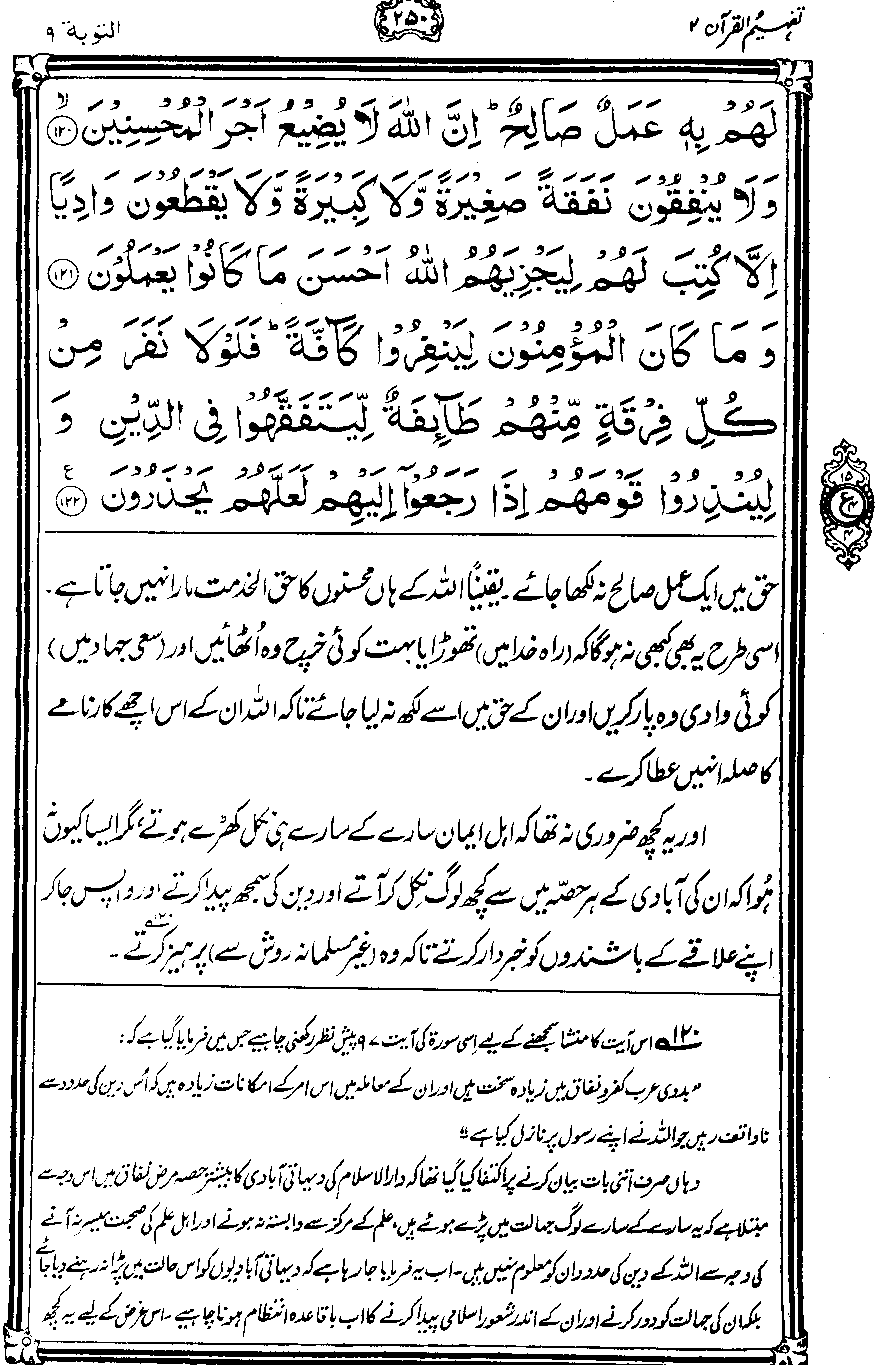 تفہیم القرآن ۲
۲۵۰
التوبۃ ۹
لَهُمْ بِهٖ عَمَلٌ صَالِحٌ ؕ اِنَّ اللّٰهَ لَا يُضِيْعُ اَجْرَ الْمُحْسِنِيْنَ ۙ﴿۱۲۰﴾
وَلَا يُنْفِقُوْنَ نَفَقَةً صَغِيْرَةً وَّلَا كَبِيْرَةً وَّلَا يَقْطَعُوْنَ وَادِيًا
اِلَّا كُتِبَ لَهُمْ لِيَجْزِيَهُمُ اللّٰهُ اَحْسَنَ مَا كَانُوْا يَعْمَلُوْنَ ﴿۱۲۱﴾
وَمَا كَانَ الْمُؤْمِنُوْنَ لِيَنْفِرُوْا كَآفَّةً ؕ فَلَوْلَا نَفَرَ مِنْ
كُلِّ فِرْقَةٍ مِّنْهُمْ طَآئِفَةٌ لِّيَتَفَقَّهُوْا فِى الدِّيْنِ وَ
لِيُنْذِرُوْا قَوْمَهُمْ اِذَا رَجَعُوْٓا اِلَيْهِمْ لَعَلَّهُمْ يَحْذَرُوْنَ ﴿۱۲۲﴾ ع
۱۵
ع
۴
حق میں ایک عمل صالح نہ لکھا جائے۔ یقیناً اللہ کے ہاں محسنوں کا حق الخدمت مارا نہیں جاتا ہے۔
اسی طرح یہ بھی کبھی نہ ہوگا کہ (راہ خدا میں) تھوڑا یا بہت کوئی خرچ وہ اُٹھائیں اور (سعی جہاد میں)
کوئی وادی وہ پار کریں اور ان کے حق میں اسے لکھ نہ لیا جائے تاکہ اللہ ان کے اس اچھے کارنامے
کا صلہ انہیں عطا کرے۔
اور یہ کچھ ضروری نہ تھا کہ اہل ایمان سارے کے سارے ہی نکل کھڑے ہوتے، مگر ایسا کیوں نہ
ہُوا کہ ان کی آبادی کے ہر حصّہ میں سے کچھ لوگ نکل کر آتے اور دین کی سمجھ پیدا کرتے اور واپس جا کر
اپنے علاقے کے باشندوں کو خبردار کرتے تاکہ وہ (غیر مسلمانہ روش سے) پرہیز کرتے۱۲۰۔
۱۲۰ اس آیت کا منشا سمجھنے کے لیے اِسی سورۃ کی آیت ۹۷ پیش نظر رکھنی چاہیے جس میں فرمایا گیا ہے کہ:
"بدوی عرب کفر و نفاق میں زیادہ سخت ہیں اور ان کے معاملہ میں اس امر کے امکانات زیادہ ہیں کہ اُس دین کی حدود سے
ناواقف رہیں جو اللہ نے اپنے رسول پر نازل کیا ہے"
وہاں صرف اتنی بات بیان کرنے پر اکتفا کیا گیا تھا کہ دارالاسلام کی دیہاتی آبادی کا بیشتر حصہ مرض نفاق میں اس وجہ سے
مبتلا ہے کہ یہ سارے کے سارے لوگ جہالت میں پڑے ہوئے ہیں، علم کے مرکز سے وابستہ نہ ہونے اور اہل علم کی صحبت میسر نہ آنے
کی وجہ سے اللہ کے دین کی حدود ان کو معلوم نہیں ہیں۔ اب یہ فرمایا جا رہا ہے کہ دیہاتی آبادیوں کو اس حالت میں پڑا نہ رہنے دیا جائے
بلکہ ان کی جہالت کو دور کرنے اور ان کے اندر شعور اسلامی پیدا کرنے کا اب باقاعدہ انتظام ہونا چاہیے۔ اس غرض کے لیے یہ کچھ